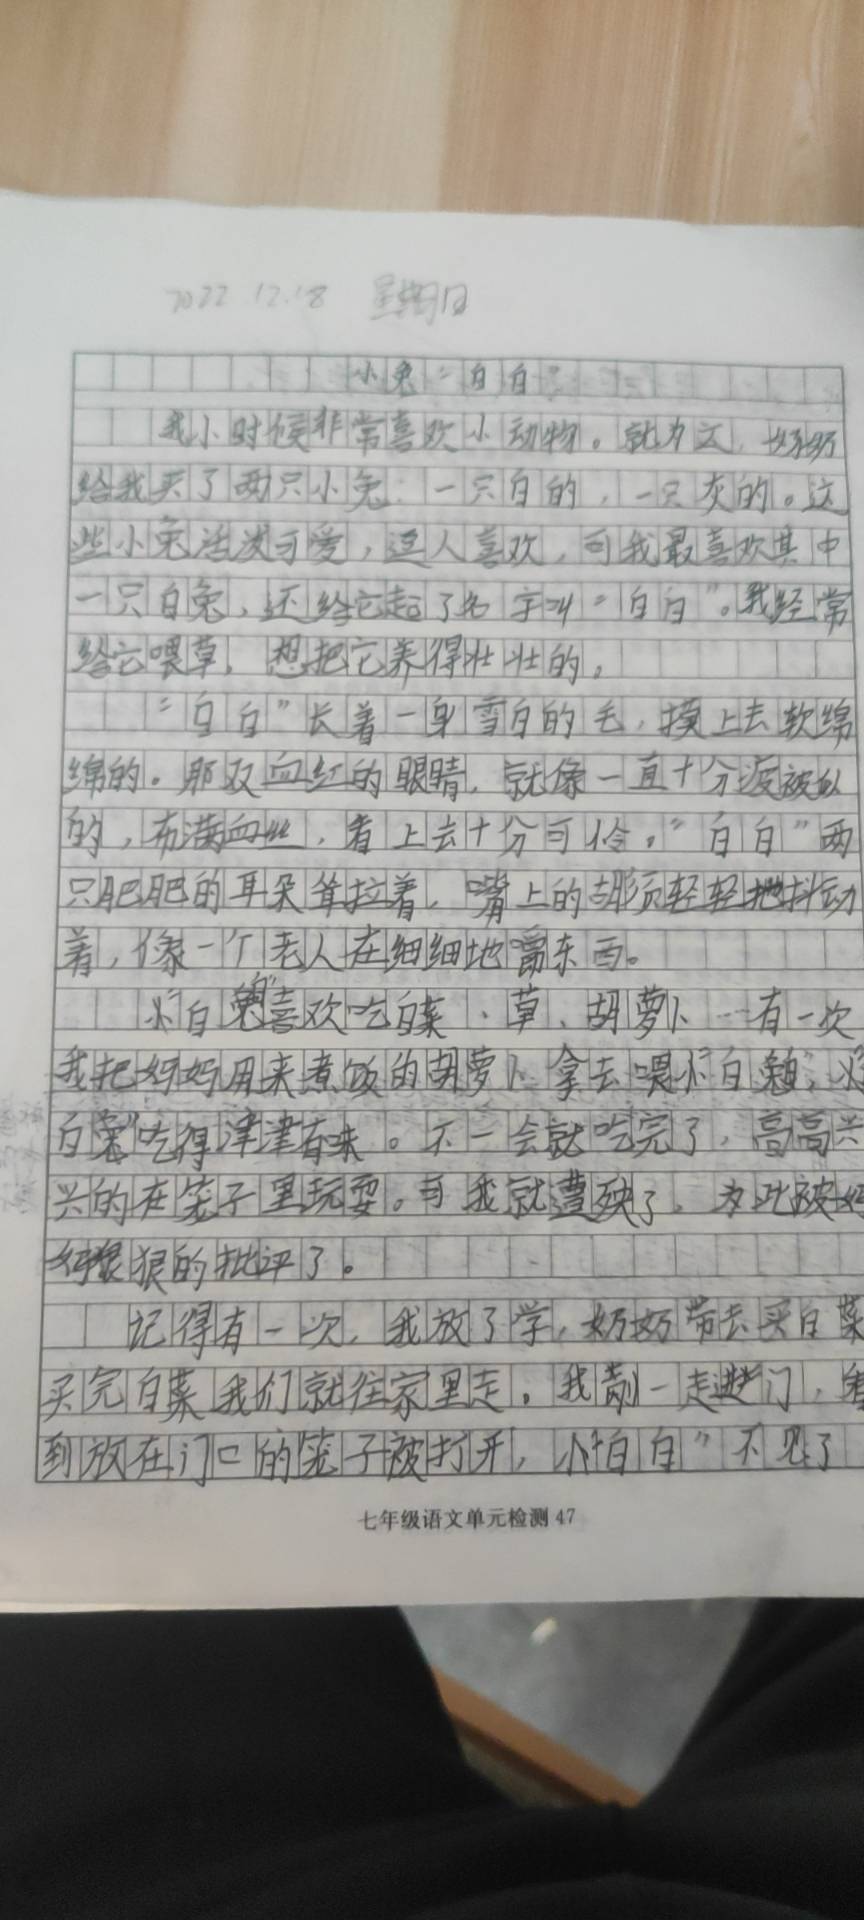 2022.12.18 星期日
小兔“白白”
我小时候非常喜欢小动物。就为这，妈妈
给我买了两只小兔：一只白的，一只灰的。这
些小兔活泼可爱，逗人喜欢，可我最喜欢其中
一只白兔，还给它起了名字叫“白白”。我经常
给它喂草，想把它养得壮壮的。
“白白”长着一身雪白的毛，摸上去软绵
绵的。那双血红的眼睛，就像一直十分疲被似
的，布满血丝，看上去十分可怜。“白白”两
只肥肥的耳朵耸拉着，嘴上的胡须轻轻地抖动
着，像一个老人在细细地嚼东西。
小白兔喜欢吃白菜、草、胡萝卜…有一次
我把妈妈用来煮饭的胡萝卜拿去喂小白兔，小
白兔吃得津津有味。不一会就吃完了，高高兴
兴的在笼子里玩耍。可我就遭殃了，为此被妈
妈狠狠的批评了。
记得有一次，我放了学，奶奶带去买白菜
买完白菜我们就往家里走。我刚一走进门，看
到放在门口的笼子被打开，小“白白”不见了
七年级语文单元检测 47